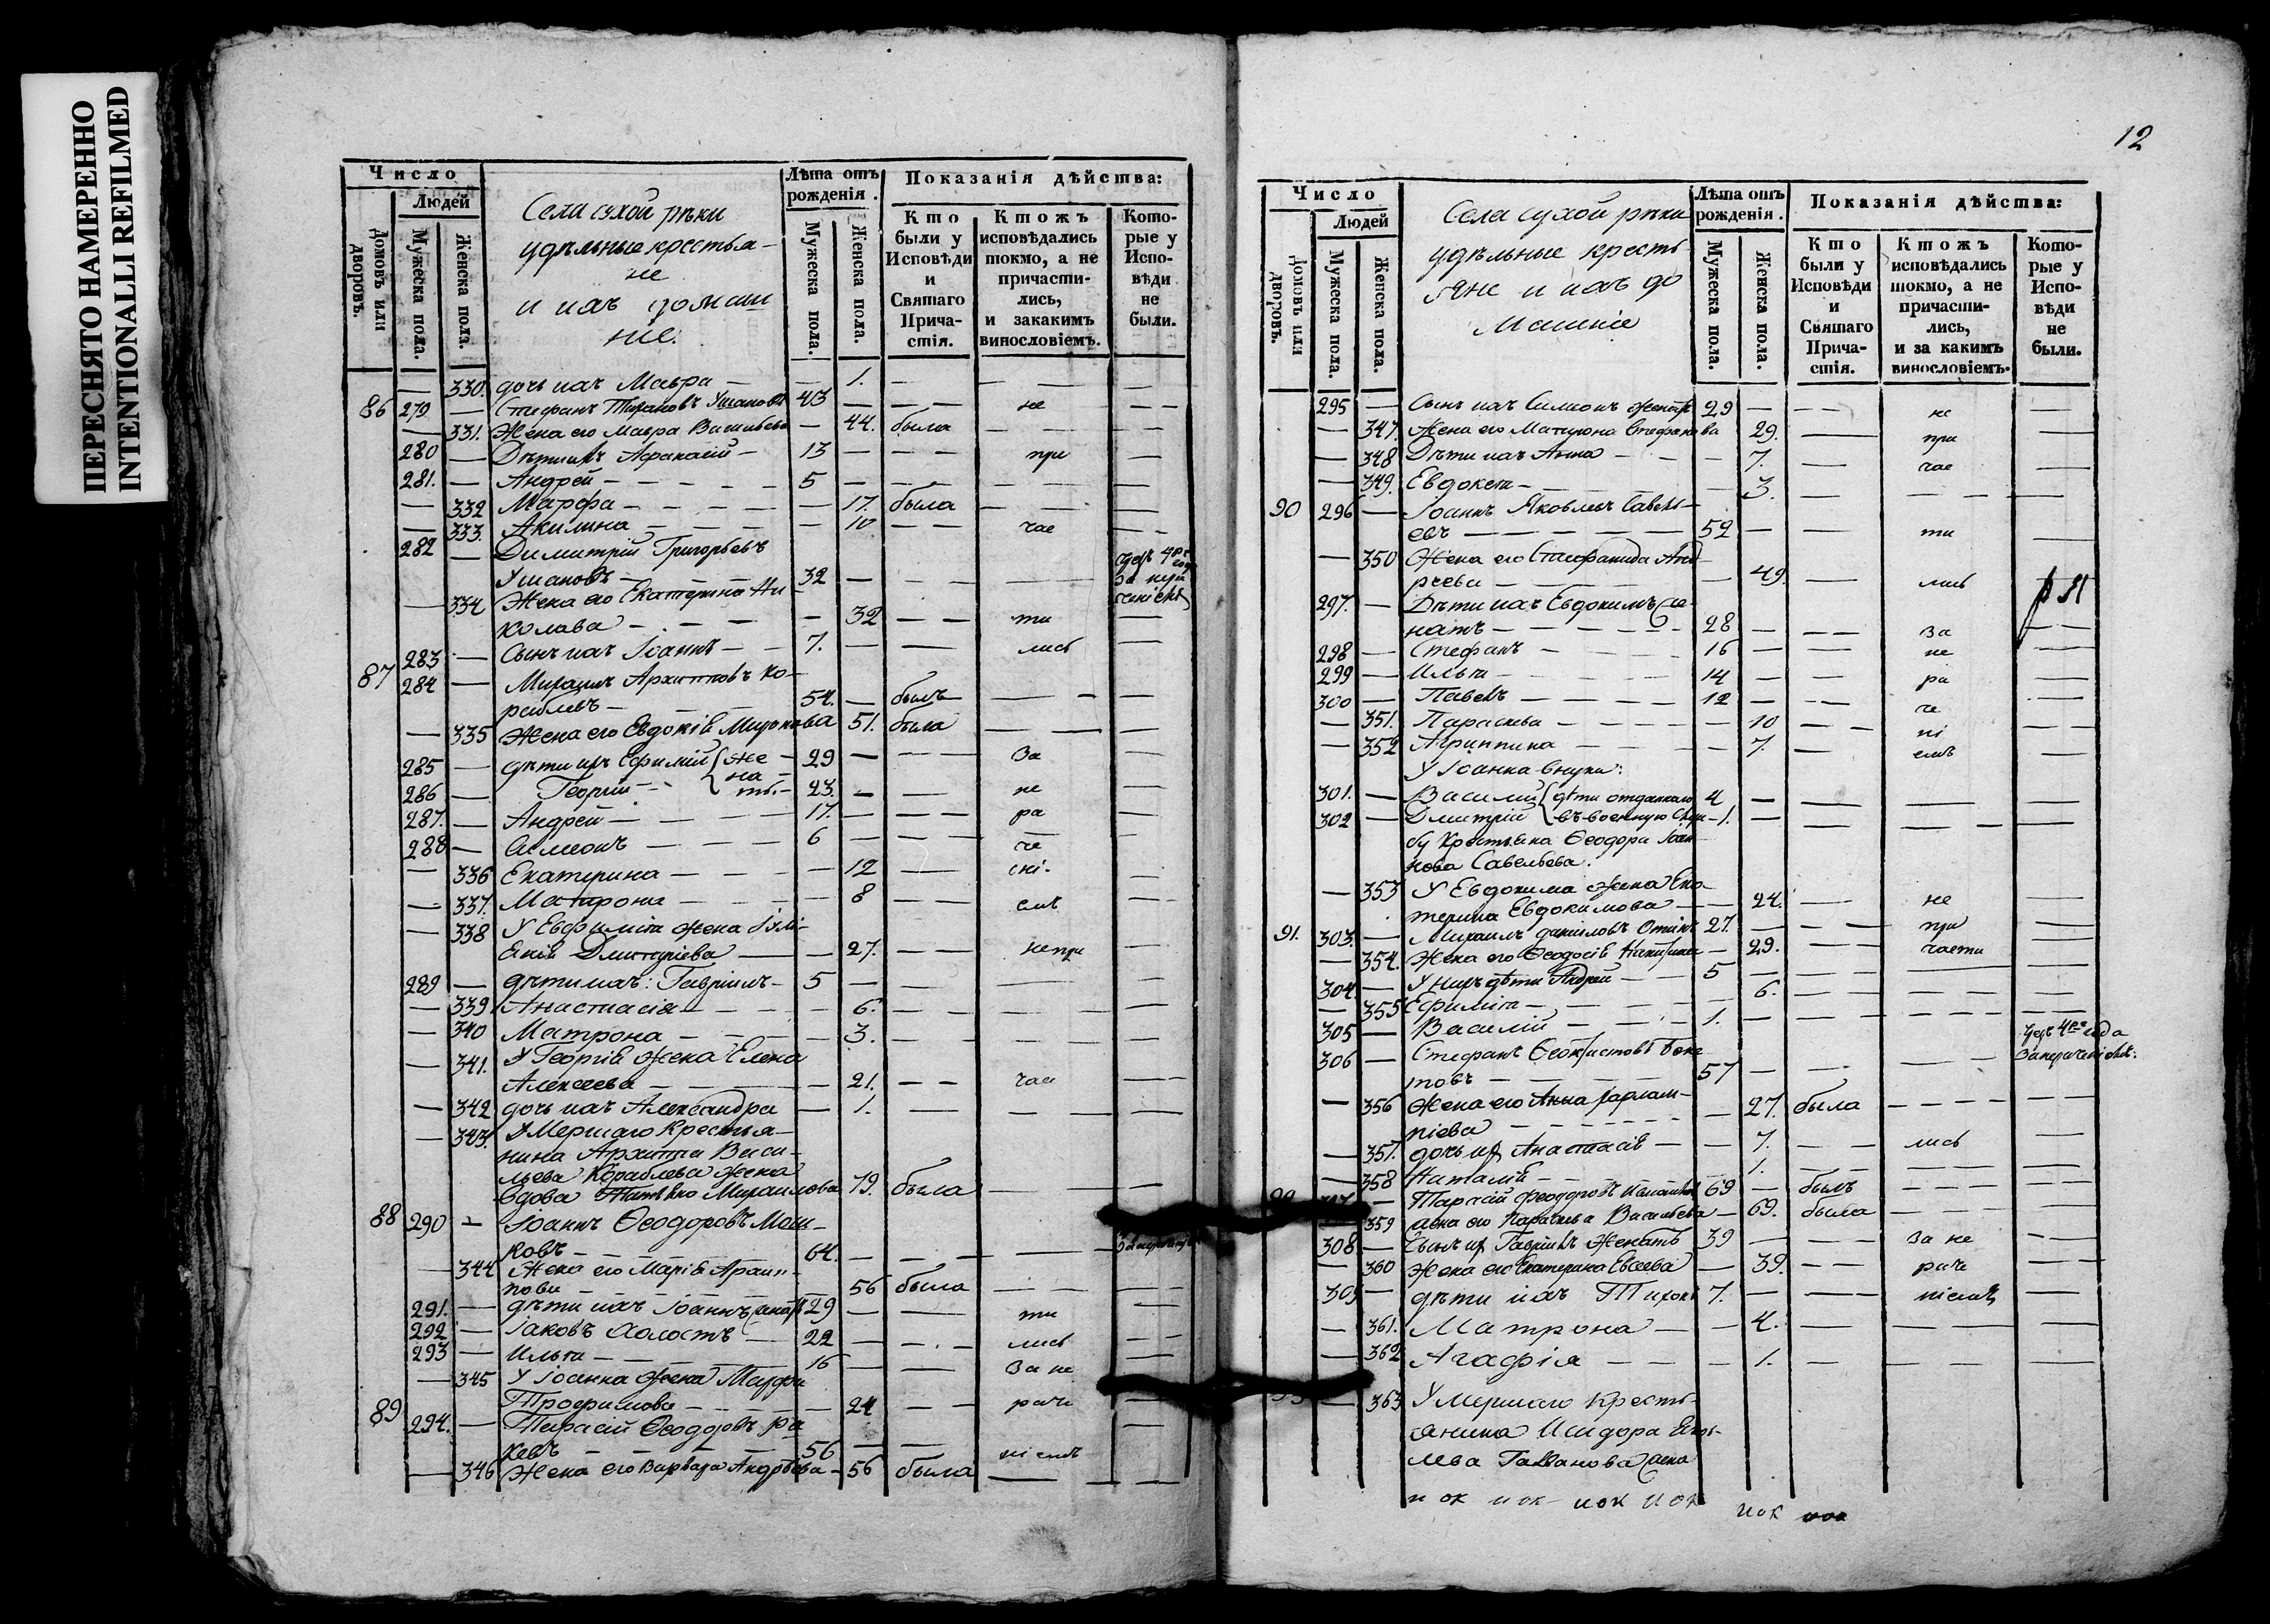 ПЕРЕСНЯТО НАМЕРЕННО
INTENTIONALLI REFILMED
Число
Людей
Домовъ или дворовъ.
Мужеска пола.
Женска пола.
Села сухой рѣки
удѣльные крестья-
не
и ихъ домаш
ніе.
Лѣта отъ рожденія.
Мужеска пола.
Женска пола.
Показанія дѣйства:
Кто были у Исповѣди и Святаго Прича-стія.
Ктожъ исповѣдались токмо, а не причасти-лись, и закакимъ винословіемъ.
Кото-рые у Испо-вѣди не были.
— 330. дочь ихъ Мавра — — 1. — — —
86 279 — Стефанъ Тихановъ Ушаковъ 43 — — — не — —
— 331. Жена его Мавра Васильева — 44. была — — —
280 — Дѣти ихъ Афанасій — 13 — — — при —
281. — Андрей — 5 — — — —
— 332 Марфа — — 17. была — —
— 333. Акилина — — 10 — — чае — —
282 — Димитрій Григорьевъ
Ушаковъ — 32 — — — —
— 334 Жена его Екатерина Ни-
колаева — — 32 — — ти —
283 — Сынъ ихъ Іоаннъ — 7. — — лись —
87 284 — Михаилъ Архиповъ Ко-
раблевъ — 54. — былъ — — —
— 335 Жена его Евдокія Миронова 51. была — — —
285 — дѣти ихъ Ефимій же — 29 — — за —
286 — Георгій — на ты. — 23. — — не —
287. — Андрей — 17. — — ра —
288 — Симеонъ — 6 — — че —
— 336 Екатерина — — 12 — сні. —
— 337. Матрона — — 8 — — емъ — —
— 338 У Евфимія жена
Дмитріева — — 27. — — непри —
289 — дѣти ихъ: Гавріилъ — 5 — — — —
— 339 Анастасія — — 6. — — — —
— 340 Матрона — — 3. — — — —
— 341. У Георгія жена Елена
Алексеева — — 21. — — час — —
— 342 дочь ихъ Александра — 1. — — —
— 343. Умершаго Крестья-
нина Архиппа Васи-
льева Кораблева жена
вдова Михаилова 79. была — —
88 290 — Іоаннъ Ѳеодоровъ Маш-
ковъ — 64. — — —
— 344 Жена его Марія Архип-
пова — 56 была — — —
291. — дѣти ихъ Іоаннъ женатъ 29 — — ти —
292 — Іаковъ Холостъ — 22 — — лись — —
293 — Илья — 16 — — За не —
— 345 У Іоанна жена Марфа
Трофимова — — 24 — — раче —
89 294. — Тарасій Ѳеодоровъ Ра
ковъ — 56 — — ніемъ
— 346 Жена его Варвара Андрѣева — 56 была — — —
12
Число
Людей
Домовъ или дворовъ.
Мужеска пола.
Женска пола.
Села сухой рѣки
удѣльные кресть
яне и ихъ до
машніе
Лѣта отъ рожденія.
Мужеска пола.
Женска пола.
Показанія дѣйства:
Кто были у Исповѣди и Святаго Прича-стія.
Ктожъ исповѣдались токмо, а не причасти-лись, и за какимъ винословіемъ.
Кото-рые у Испо-вѣди не были.
295 — Сынъ ихъ Симеонъ женатъ 29 — — — не —
— 347. Жена его Матрона Стефанова 29. — при —
— 348 Дѣти ихъ Анна — — 7. — чае —
— 349. Евдокея — 3. — — —
90 296 — Іоаннъ Яковлевъ Савель-
евъ — 52 — — ти —
— 350 Жена его Стефанида Анд
реева — — 49. — лись
297. — Дѣти ихъ Евдокимъ же
натъ — 28 — — — За — —
298 — Стефанъ — 16 — — не
299 — Илья — 14 — — ра —
300 — Павелъ — 12 — — че —
— 351. Параскева — — 10 — — ні —
— 352 Агриппина — — 7. — емъ —
У Іоанна внуки:
301. — Василій дѣти отданнаго 4 — — — —
302 — Дмитрій въ военную служ — 1. — — — —
бу Крестьяна Ѳеодора Іоан
нова Савельева.
— 353 У Евдокима жена Ека-
терина Евдокимова — 24. — не —
91. 303. — Михаилъ Даниловъ 27. — — — при —
— 354. Жена его Ѳеодосія Никитина — 29. — — части —
304 — У нихъ дѣти Андрей — 5 — — — —
— 355 Ефимія — 6. — — — —
305 — Василій — 1. — — — —
306 — Стефанъ Ѳеоктистовъ
товъ — 57 — — — —
— 356 Жена его Анна Харлам-
піева — — 27. была — — —
— 357. дочь их Анастасія — — 7. — — лись —
— 358 Наталія — — 1. — — —
Тарасій Ѳеодоровъ 69 — былъ — —
359 жена его Параскева Васильева — 69. была — — —
308 — Сынъ их Гавріилъ Женатъ 39 — — — За не — —
— 360 Жена его Екатерина Евсеева — 39. — — раче —
309 — дѣти ихъ Тихонъ 7. — — ніемъ —
— 361. Матрона — — 4. — — —
— 362 Агафія — — 1. — — — —
— 363 Умершаго Кресть-
янина Исидора
лева жена